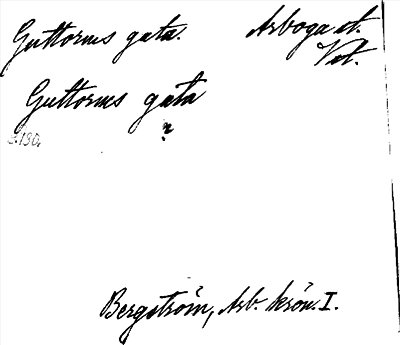 Guttorms gata. Arboga st.
Vstl.
Guttorms gata
?
s. 130.
Bergström, Arb. krön. I.